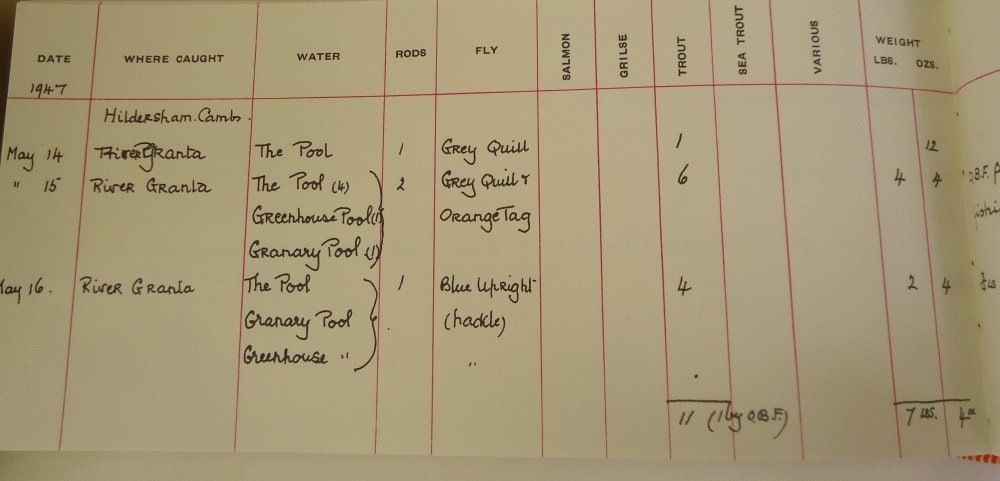 DATE WHERE CAUGHT WATER RODS FLY SALMON GRILSE TROUT SEA TROUT VARIOUS WEIGHT
LBS. OZS.
1947
Hildersham. Cambs.
May 14 River Granta The Pool 1 Grey Quill 1 12
" 15 River Granta The Pool (4) 2 Grey Quill & 6 4 4 O.B.F.
Greenhouse Pool (1) Orange Tag
Granary Pool (1)
May 16. River Granta The Pool 1 Blue Upright 4 2 4
Granary Pool (hackle)
Greenhouse " "
11 (1 by O.B.F.) 7 LBS. 4